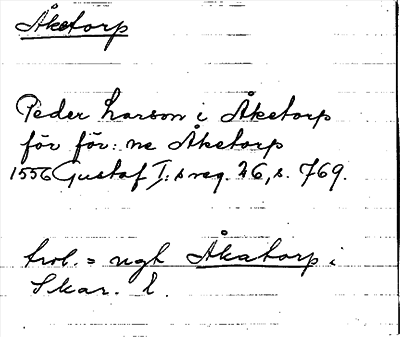 Åketorp
Peder Larson i Åketorp
för för: ne Åketorp
1556 Gustaf I:s reg. 26, s. 769.
trol. = ngt Åkatorp i
Skar. l.